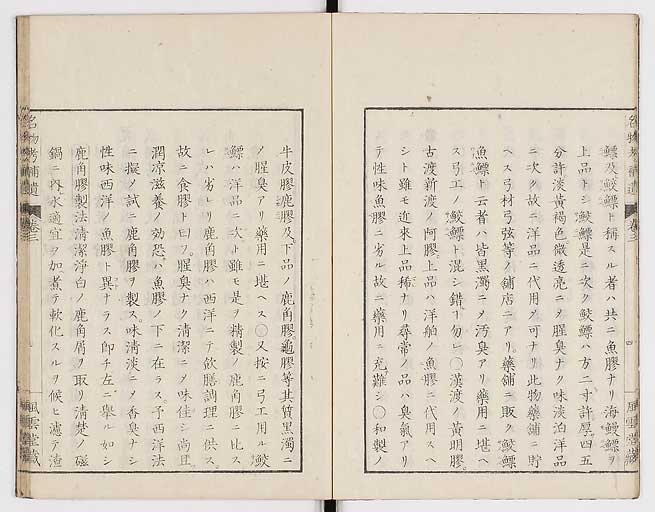 鰾及鮫鰾ト稱スル者ハ共ニ魚膠ナリ海鰻鰾ヲ
上品トシ鮫鰾是ニ次ク鮫鰾ハ方二寸許厚四五
分許淡黄褐色微透亮ニメ腥臭ナク味淡泊洋品
ニ次ク故ニ洋品ニ代用ノ可ナリ此物藥鋪ニ貯
ヘス弓材弓弦等ノ鋪店ニアリ藥鋪ニ販ク鮫鰾
魚鰾ト云者ハ皆黒濁ニメ汚臭アリ藥用ニ堪ヘ
ス弓エノ鮫鰾ト混シ錯リ勿レ〇漢渡ノ黄明膠
古渡新渡ノ阿膠上品ハ洋舶ノ魚膠ニ代用スヘ
シト雖モ近來上品稀ナリ尋常ノ品ハ臭氣アリ
テ性味魚膠ニ劣ル故ニ藥用ニ充難シ〇和製ノ
名物考補遺
卷三
四
風雲堂藏
牛皮膠鹿膠及下品ノ鹿角膠龜膠等其質黒濁ニ
ノ腥臭アリ藥用ニ堪ヘス〇又按ニ弓工用ル鮫
鰾ハ洋品ニ次ト雖モ是ヲ精製ノ鹿角膠ニ比ス
レハ劣レリ鹿角膠ハ西洋ニテ飲膳調理ニ供ス
故ニ食膠ト曰フ腥臭ナク清潔ニメ味佳シ尚且
潤凉滋養ノ効恐ハ魚膠ノ下ニ在ラス予西洋法
ニ擬ノ試ニ鹿角膠ヲ製ス味清淡ニメ香臭ナシ
性味西洋ノ魚膠ト異ナラス即チ左ニ擧ル如シ
鹿角膠製法清潔淨白ノ鹿角屑ヲ取リ清楚ノ磁
鍋ニ内水適宜ヲ加煮テ軟化スルヲ候ヒ濾テ渣
名物考補遺
卷三
風雲堂藏